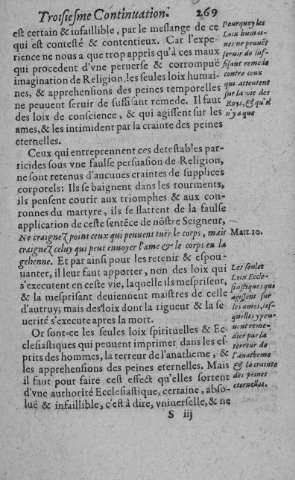 Troisiesme Continuation. 269
est certain & infaillible, par le meslange de ce
qui est contesté & contentieux. Car l'expe-
rience ne nous a que trop appris qu'à ces maux
qui procedent d'vne peruerse & corrompuë
imagination de Religion, les seules loix humai-
nes, & apprehensions des peines temporelles
ne peuuent seruir de suffisant remede. Il faut
des loix de conscience, & qui agissent sur les
ames, & les intimident par la crainte des peines
eternelles.
Ceux qui entreprennent ces detestables par-
ticides sous vne faulse persuasion de Religion,
ne sont retenus d'aucunes craintes de supplices
corporels: Ils se baignent dans les tourments,
ils pensent courir aux triomphes & aux cou-
ronnes du martyre, ils se flattent de la faulse
application de ceste sentēce de nostre Seigneur,
Ne craignez point ceux qui peuuent tuer le corps, mais
craignez celuy qui peut enuoyer l'ame & le corps en la
gehenne. Et par ainsi pour les retenir & espou-
uanter, il leur faut apporter, non des loix qui
s'executent en ceste vie, laquelle ils mesprisent,
& la mesprisant deuiennent maistres de celle
d'autruy, mais des loix dont la rigueur & la se-
uerité s'execute apres la mort.
Or sont-ce les seules loix spirituelles & Ec-
clesiastiques qui peuuent imprimer dans les es-
prits des hommes, la terreur de l'anatheme, &
les apprehensions des peines eternelles. Mais
il faut pour faire cest effect qu'elles sortent
d'vne authorité Ecclesiastique, certaine, abso-
luë & infaillible, c'est à dire, vniuerselle, & ne
S iij
Pourquoy les
Loix humai-
nes ne peuuēt
seruir de suf-
fisant remede
contre ceux
qui attentent
sur la vie des
Roys, & qu'il
n'y a que
Matt. 10.
Les seules
Loix Eccle-
siastiques qui
agissent sur
les ames, les-
quelles y peu-
uent reme-
dier par la
terreur de
l'anatheme
& la crainte
des peines
eternelles.